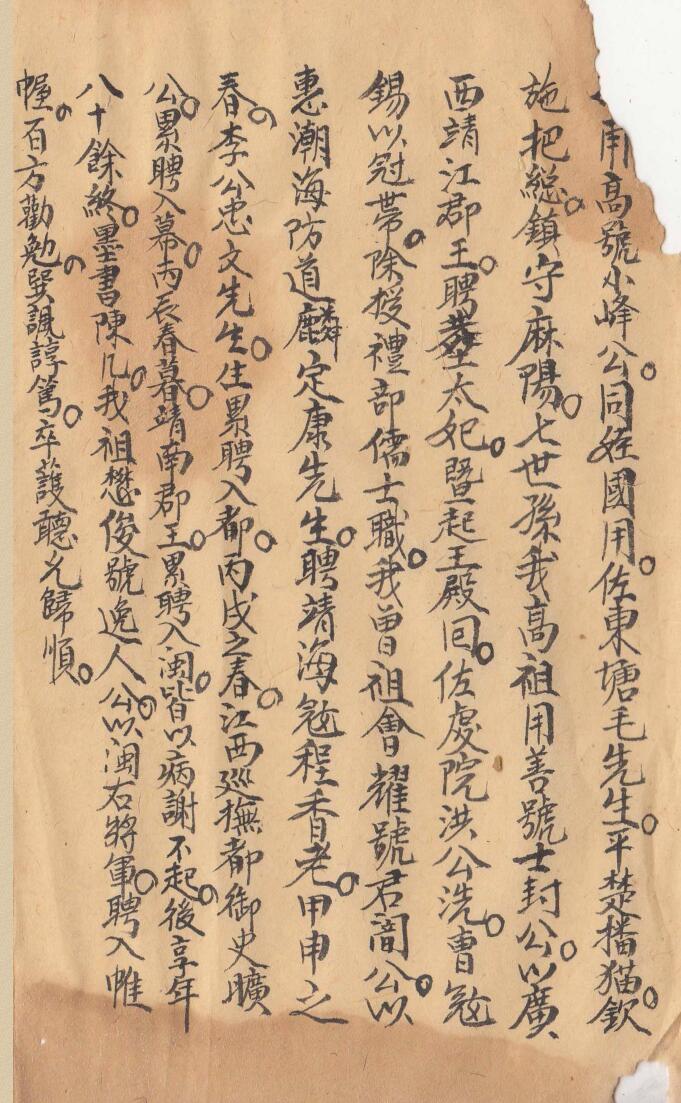 用高號小峰公。同姪國用。佐東塘毛先生。平楚播猫。欽
施把総。鎮守麻陽。七世孫我高祖用善號士封公。以廣
西靖江郡王。聘塟太妃。暨起王殿回。佐虔院洪公洗。曹寇
錫以冠带。除授禮部儒士職。我曽祖會耀號君闇公。以
惠潮海防道麟定康先生。聘靖海寇程香老。甲申之
春。李公忠文先生。住累聘入都。丙戌之春。江西廵撫都御史曠
公。累聘入幕。丙辰春暮。靖南郡王。累聘入闽。皆以病謝不起。後享年
八十餘終。墨書陳几。我祖懋俊號逸人公。以闽右將軍。聘入帷
幄。百方勸勉。巽諷諄篤。卒䕶聽允歸順。